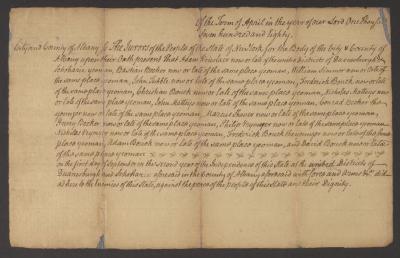 Of the Term of April in the year of our Lord One thousand
Seven hundred and Eighty.
City and County of Albany ss The Jurors of the People of the State of New York for the Body of the City & County of
Albany upon their Oath present that Adam now or late of the united districts of Duanesburgh &
Schoharie yeoman, Bastian Becker now or late of the same place yeoman, William now or late of
the same place yeoman, John now or late of the same place yeoman, Frederick Bouck now or late
of the same place yeoman, Christian Bouck now or late of the same place yeoman, Nicholas Mattys now
or late of the same place yeoman, John Mattys now or late of the same place yeoman, Conrad Becker the
younger now or late of the same place yeoman, now or late of the same place yeoman,
Becker now or late of the same place yeoman, Philip now or late of the same place yeoman
Nicholas now or late of the same place yeoman, Frederick Bouck the younger now or late of the same
place yeoman, Adam Bouck now or late of the same place yeoman, and David Bouck now or late
of the same place yeoman
on the first day of September in the second year of the Independence of this State at the united Districts of
Duanesburgh and Schoharie aforesaid in the County of Albany aforesaid with force and Arms &c. did
adhere to the Enemies of this State, against the peace of the people of this State and their Dignity.